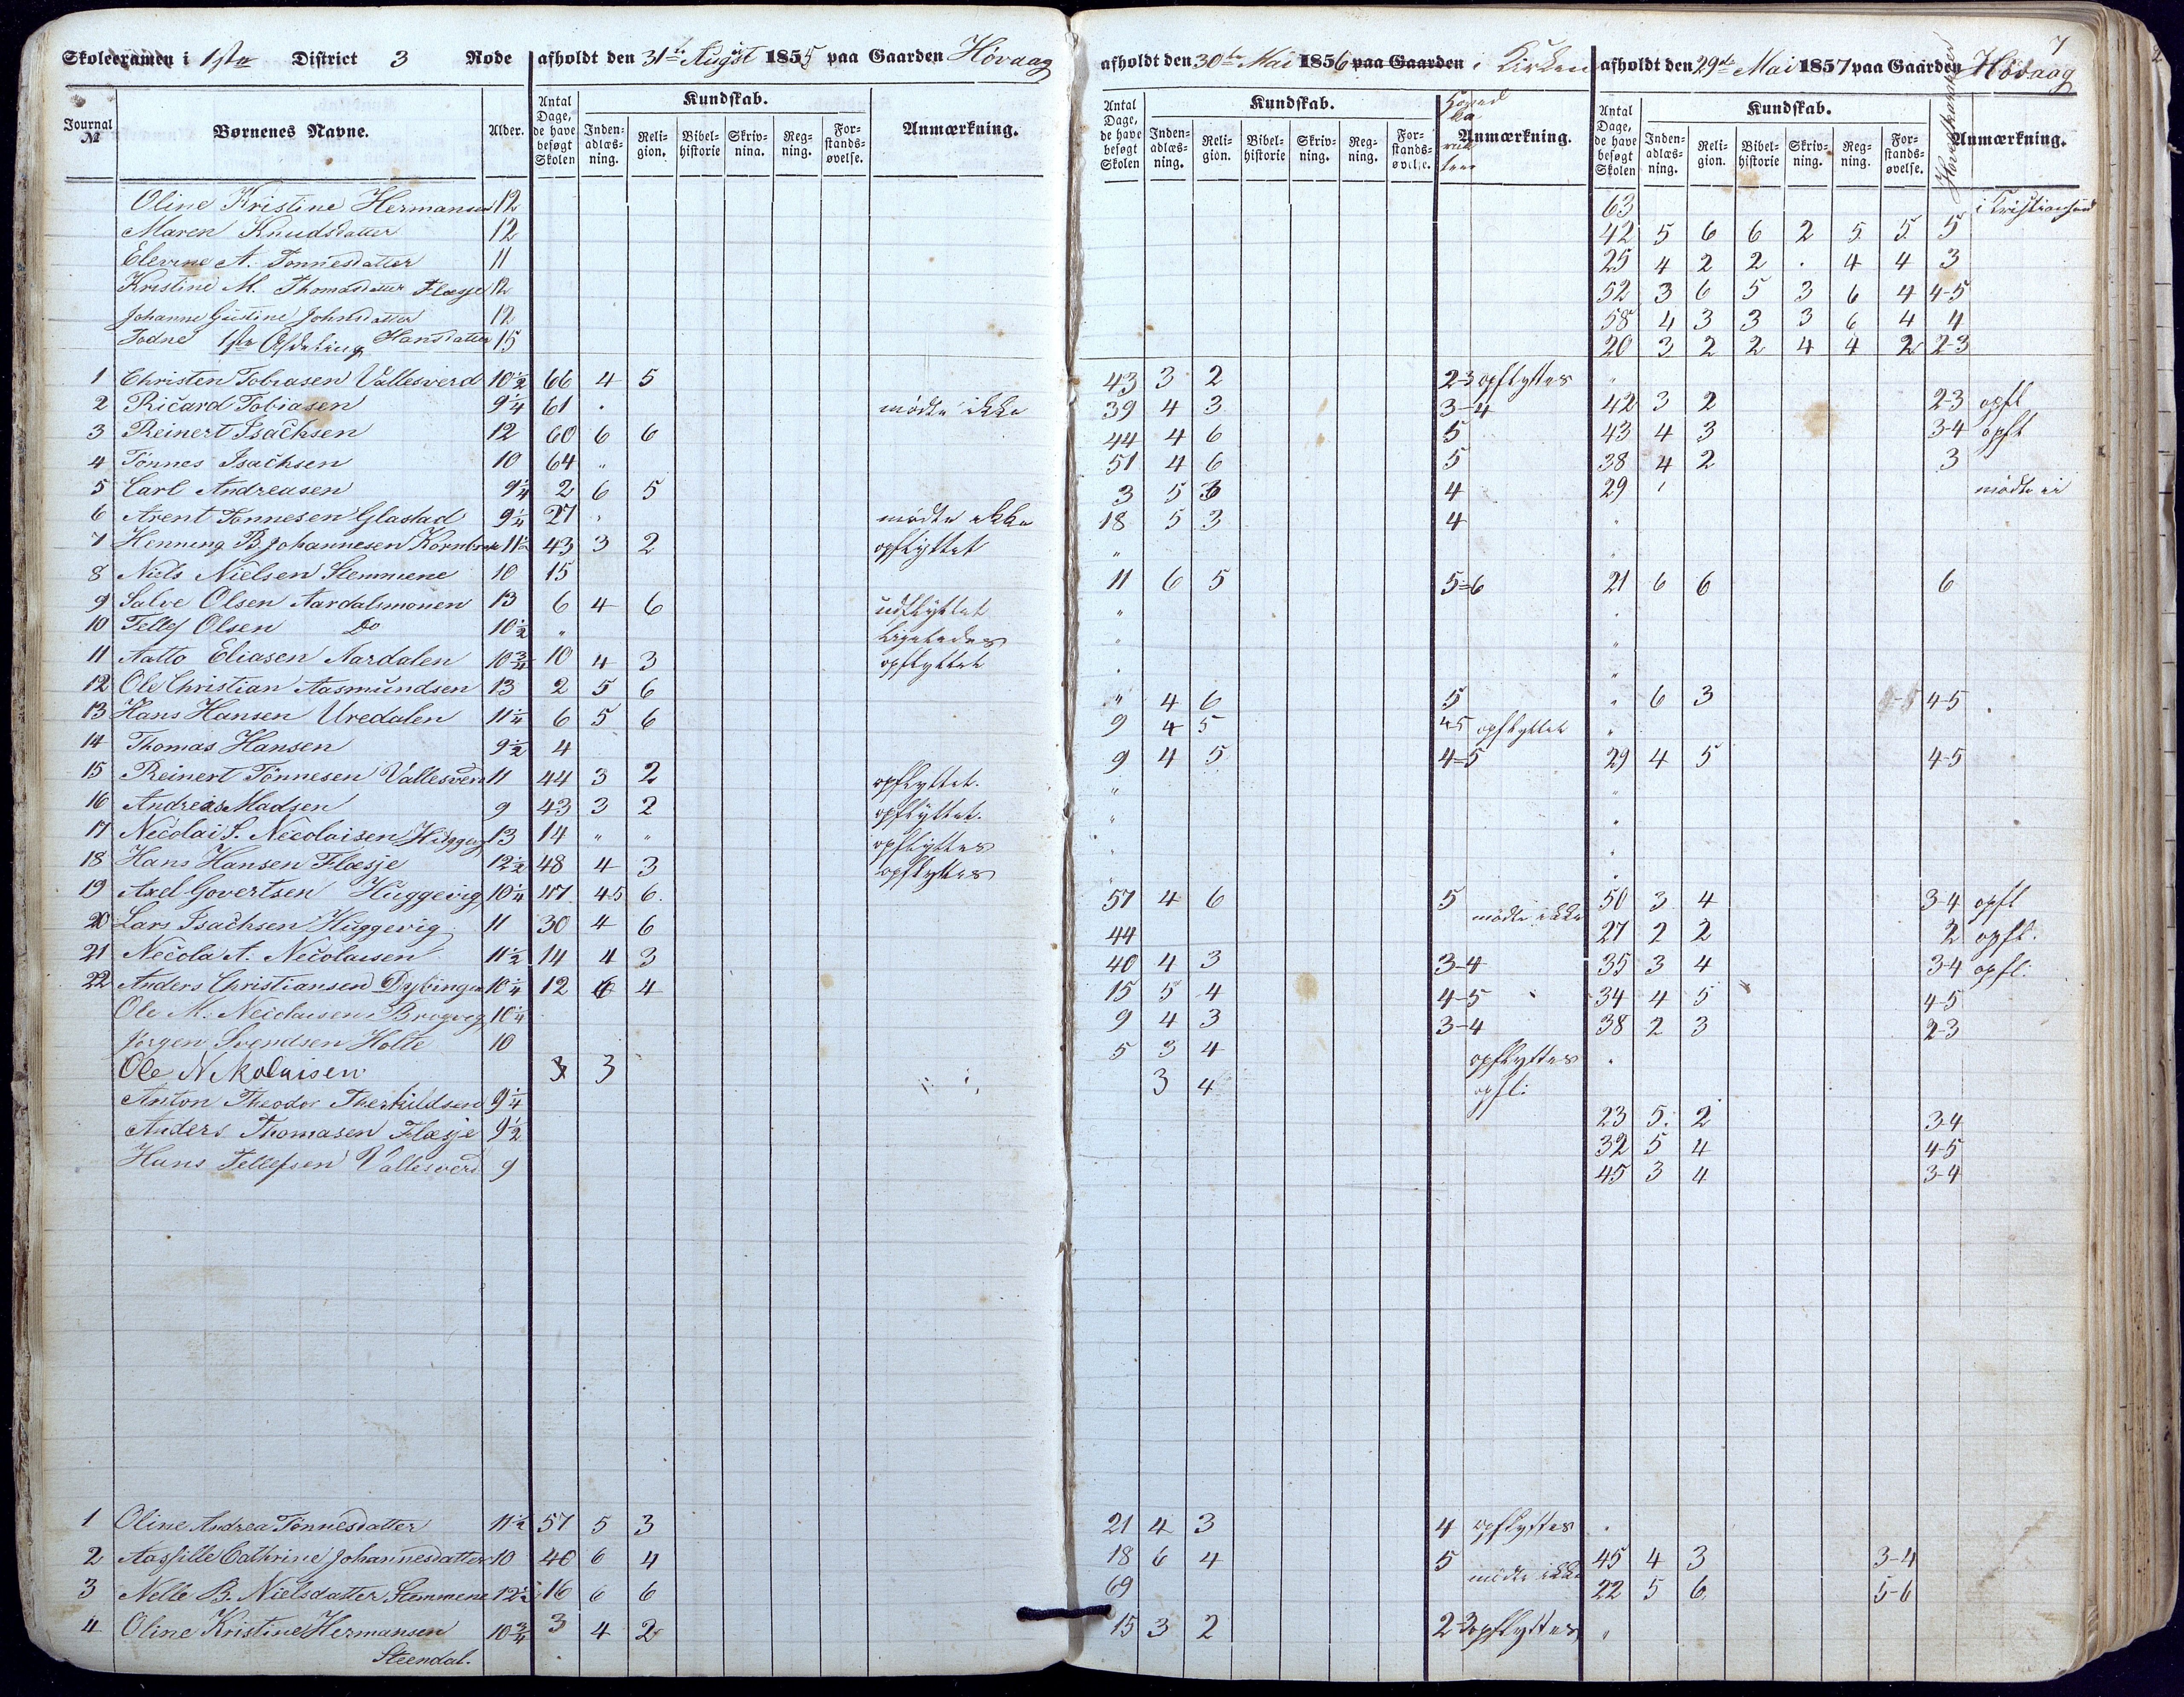 7
Skoleexamen i 1ste District 3 Rode afholdt den 31te August 1855 paa Gaarden Høvaag afholdt den 30te Mai 1856 paa Gaarden i Kirken afholdt den 29de Mai 1857 paa Gaarden Høvaag
Journal № Børnenes Navne. Alder. Antal Dage, de have besøgt Skolen Kundskab. Indenadlæsning. Religion. Bibelhistorie Skrivnina. Regning. Forstandsøvelse. Anmærkning. Antal Dage, de have besøgt Skolen Kundskab. Indenadlæsning. Religion. Bibelhistorie Skrivning. Regning. Forstandsøvelse. Anmærkning. Antal Dage, de have besøgt Skolen Kundskab. Indenadlæsning. Religion. Bibelhistorie Skrivning. Regning. Forstandsøvelse. Hovedkarakter Anmærkning.
Oline Kristine Hermansen 12 63 i Kristiansand
Maren Knudsdatter 12 42 5 6 6 2 5 5 5
Elevine A. Tønnesdatter 11 25 4 2 2 . 4 4 3
Kristine M. Thomasdatter Flæsje 12 52 3 6 5 3 6 4 4-5
Johanne Gustine Johnsdatter 12 58 4 3 3 3 6 4 4
Hansdatter 15 20 3 2 2 4 4 2 2-3
1ste Afdeling
1 Christen Tobiasen Vallesverd 10½ 66 4 5 43 3 2 2-3 opflyttes "
2 Ricard Tobiasen 9¼ 61 . mødte ikke 39 4 3 3-4 42 3 2 2-3 opfl
3 Reinert Isachsen 12 60 6 6 44 4 6 5 43 4 3 3-4 opfl
4 Tönnes Isachsen 10 64 " 51 4 6 5 38 4 2 3
5 Carl Andreasen 9¼ 2 6 5 3 5 3 4 29 mødte ei
6 Arent Tønnesen Glastad 9¼ 27 . mødte ikke 18 5 3 4 "
7 Henning B Johannesen 11½ 43 3 2 opflyttet " "
8 Niels Nielsen Stemmene 10 15 11 6 5 5=6 21 6 6 6
9 Salve Olsen Aardalsmonen 13 6 4 6 udflyttet " .
10 Tellef Olsen Do 10½ " ligeledes " "
11 Aatto Eliasen Aardalen 10¾ 10 4 3 opflyttet . "
12 Ole Christian Aasmundsen 13 2 5 6 " 4 6 5 " 6 3 4-5
13 Hans Hansen Uredalen 11¼ 6 5 6 9 4 5 4-5 opflyttet "
14 Thomas Hansen 9½ 4 9 4 5 4=5 29 4 5 4-5
15 Reinert Tönnesen Vallesverd 11 44 3 2 opflyttet. " "
16 Andreas Madsen 9 43 3 2 opflyttet. " .
17 Necolai S. Necolaisen Huggevig 13 14 " " opflyttes . "
18 Hans Hansen Flæsje 12½ 48 4 3 opflyttes " .
19 Axel Govertsen Huggevig 10¼ 47 4-5 6. 57 4 6 5 50 3 4 3-4 opfl
20 Lars Isachsen Huggevig 11 30 4 6 44 mødte ikke 27 2 2 2 opfl.
21 Necola A. Necolaisen 11½ 14 4 3 40 4 3 3-4 35 3 4 3-4 opfl.
22 Anders Christiansen Dybingen 10¼ 12 6 4 15 5 4 4-5 34 4 5 4-5
Ole M. Necolaisen 10¼ 9 4 3 3-4 38 2 3 2-3
Jörgen Svendsen Holte 10 5 3 4 opflyttes .
Ole Nikolaisen 3 3 3 4 opfl:
Anton Theodor Therkildsen 9¼ 23 5. 2 3-4
Anders Thomasen Flæsje 9½ 32 5 4 4-5
Hans Tellefsen Vallesverd 9 45 3 4 3-4
1 Oline Andrea Tönnesdatter 11½ 57 5 3 21 4 3 4 opflyttes .
2 Cathrine Johannesdatter 10 40 6 4 18 6 4 5 45 4 3 3-4
3 Nelle B. Nielsdatter Stemmene 12½ 16 6 6 69 mødte ikke 22 5 6 5-6
4 Oline Kristine Hermansen 10¾ 3 4 2 15 3 2 2-3 opflyttes "
Steendal.